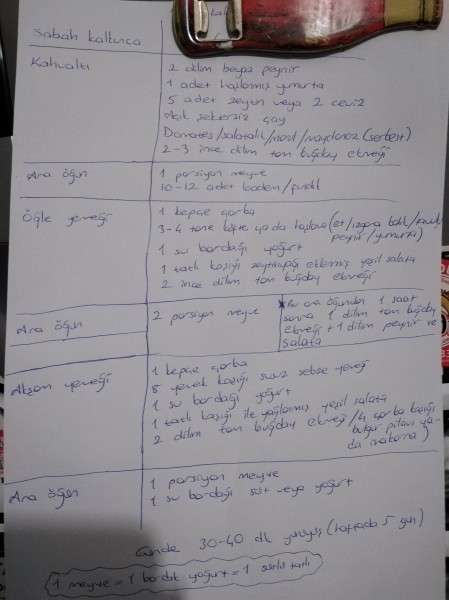 Sabah kalkınca
Kahvaltı
2 dilim beyaz peynir
1 adet haşlanmış yumurta
5 adet zeytin veya 2 ceviz
Açık şekersiz çay
Domates/salatalık/marul/maydanoz (serbest)
2-3 ince dilim tam buğday ekmeği
Ara öğün
1 porsiyon meyve
10-12 adet badem/fındık
Öğle yemeği
1 kepçe çorba
3-4 tane köfte ya da haşlama (et/ızgara balık/tavuk/
peynir/yumurta)
1 su bardağı yoğurt
1 tatlı kaşığı zeytinyağı eklenmiş yeşil salata
2 ince dilim tam buğday ekmeği
Ara öğün
2 porsiyon meyve
*Bu ara öğünden 1 saat
sonra 1 dilim tam buğday
ekmeği + 1 dilim peynir ve
salata
Akşam yemeği
1 kepçe çorba
8 yemek kaşığı susuz sebze yemeği
1 su bardağı yoğurt
1 tatlı kaşığı ile yağlanmış yeşil salata
2 dilim tam buğday ekmeği/4 çorba kaşığı
bulgur pilavı ya
da makarna)
Ara öğün
1 porsiyon meyve
1 su bardağı süt veya yoğurt
Günde 30-40 dk yürüyüş (haftada 5 gün)
1 meyve = 1 bardak yoğurt = 1 sütlü tatlı